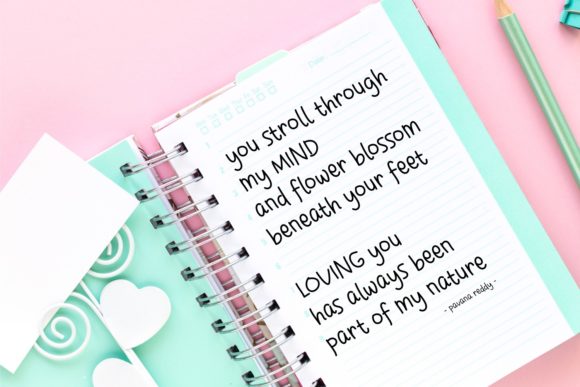 Date:
you stroll through
my MIND
and flower blossom
beneath your feet
LOVING you
has always been
part of my nature
- pavana reddy -